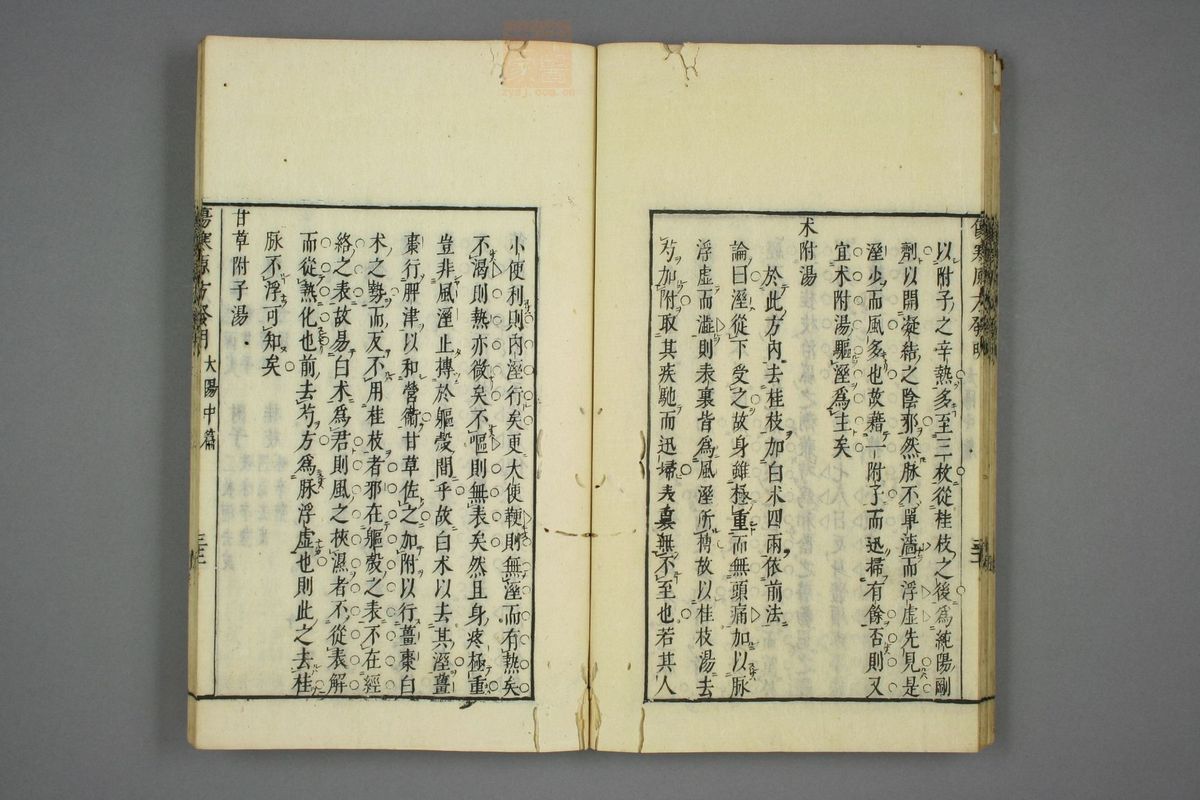 以附子之辛熱多至三枚從桂枝之後爲純陽剛
劑以開凝結之陰邪然脉不單濇而浮虛先見是
溼少而風多也故藉一附子而迅掃有餘否則又
宜朮附湯驅溼爲主矣
术附湯
於此方內去桂枝加白术四兩依前法
論曰溼從下受之故身雖極重而無頭痛加以脉
浮虛而濇則表裏皆爲風溼所搏故以桂枝湯去
芍加附取其疾馳而迅掃表裏無不至也若其人
小便利則內溼行矣更大便鞕則無溼而有熱矣
不渴則熱亦微矣不嘔則無表矣然且身疼極重
豈非風溼止搏於軀殼間乎故白术以去其溼薑
棗行脾津以和營衞甘草佐之加附以行薑棗白
术之勢而反不用桂枝者邪在軀殼之表不在經
絡之表故易白术爲君則風之挾濕者不從表解
而從熱化也前去芍方爲脉浮虛也則此之去桂
脉不浮可知矣
甘草附子湯
傷寒原方發明 太陽中篇 三十二